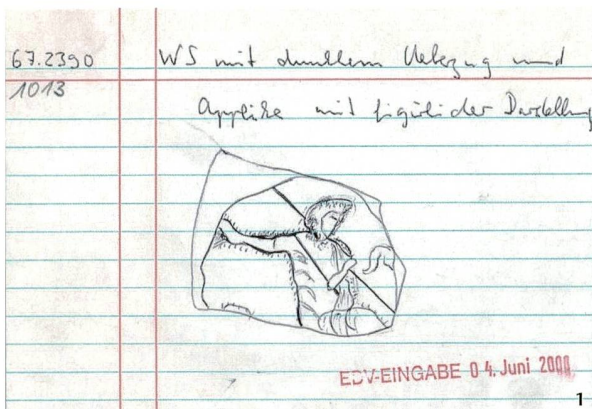 67.2390 WS mit dunklem Ueberzug und
1013 Applike mit figürlicher Darstellung
EDV-EINGABE 0 4. Juni 2000
1